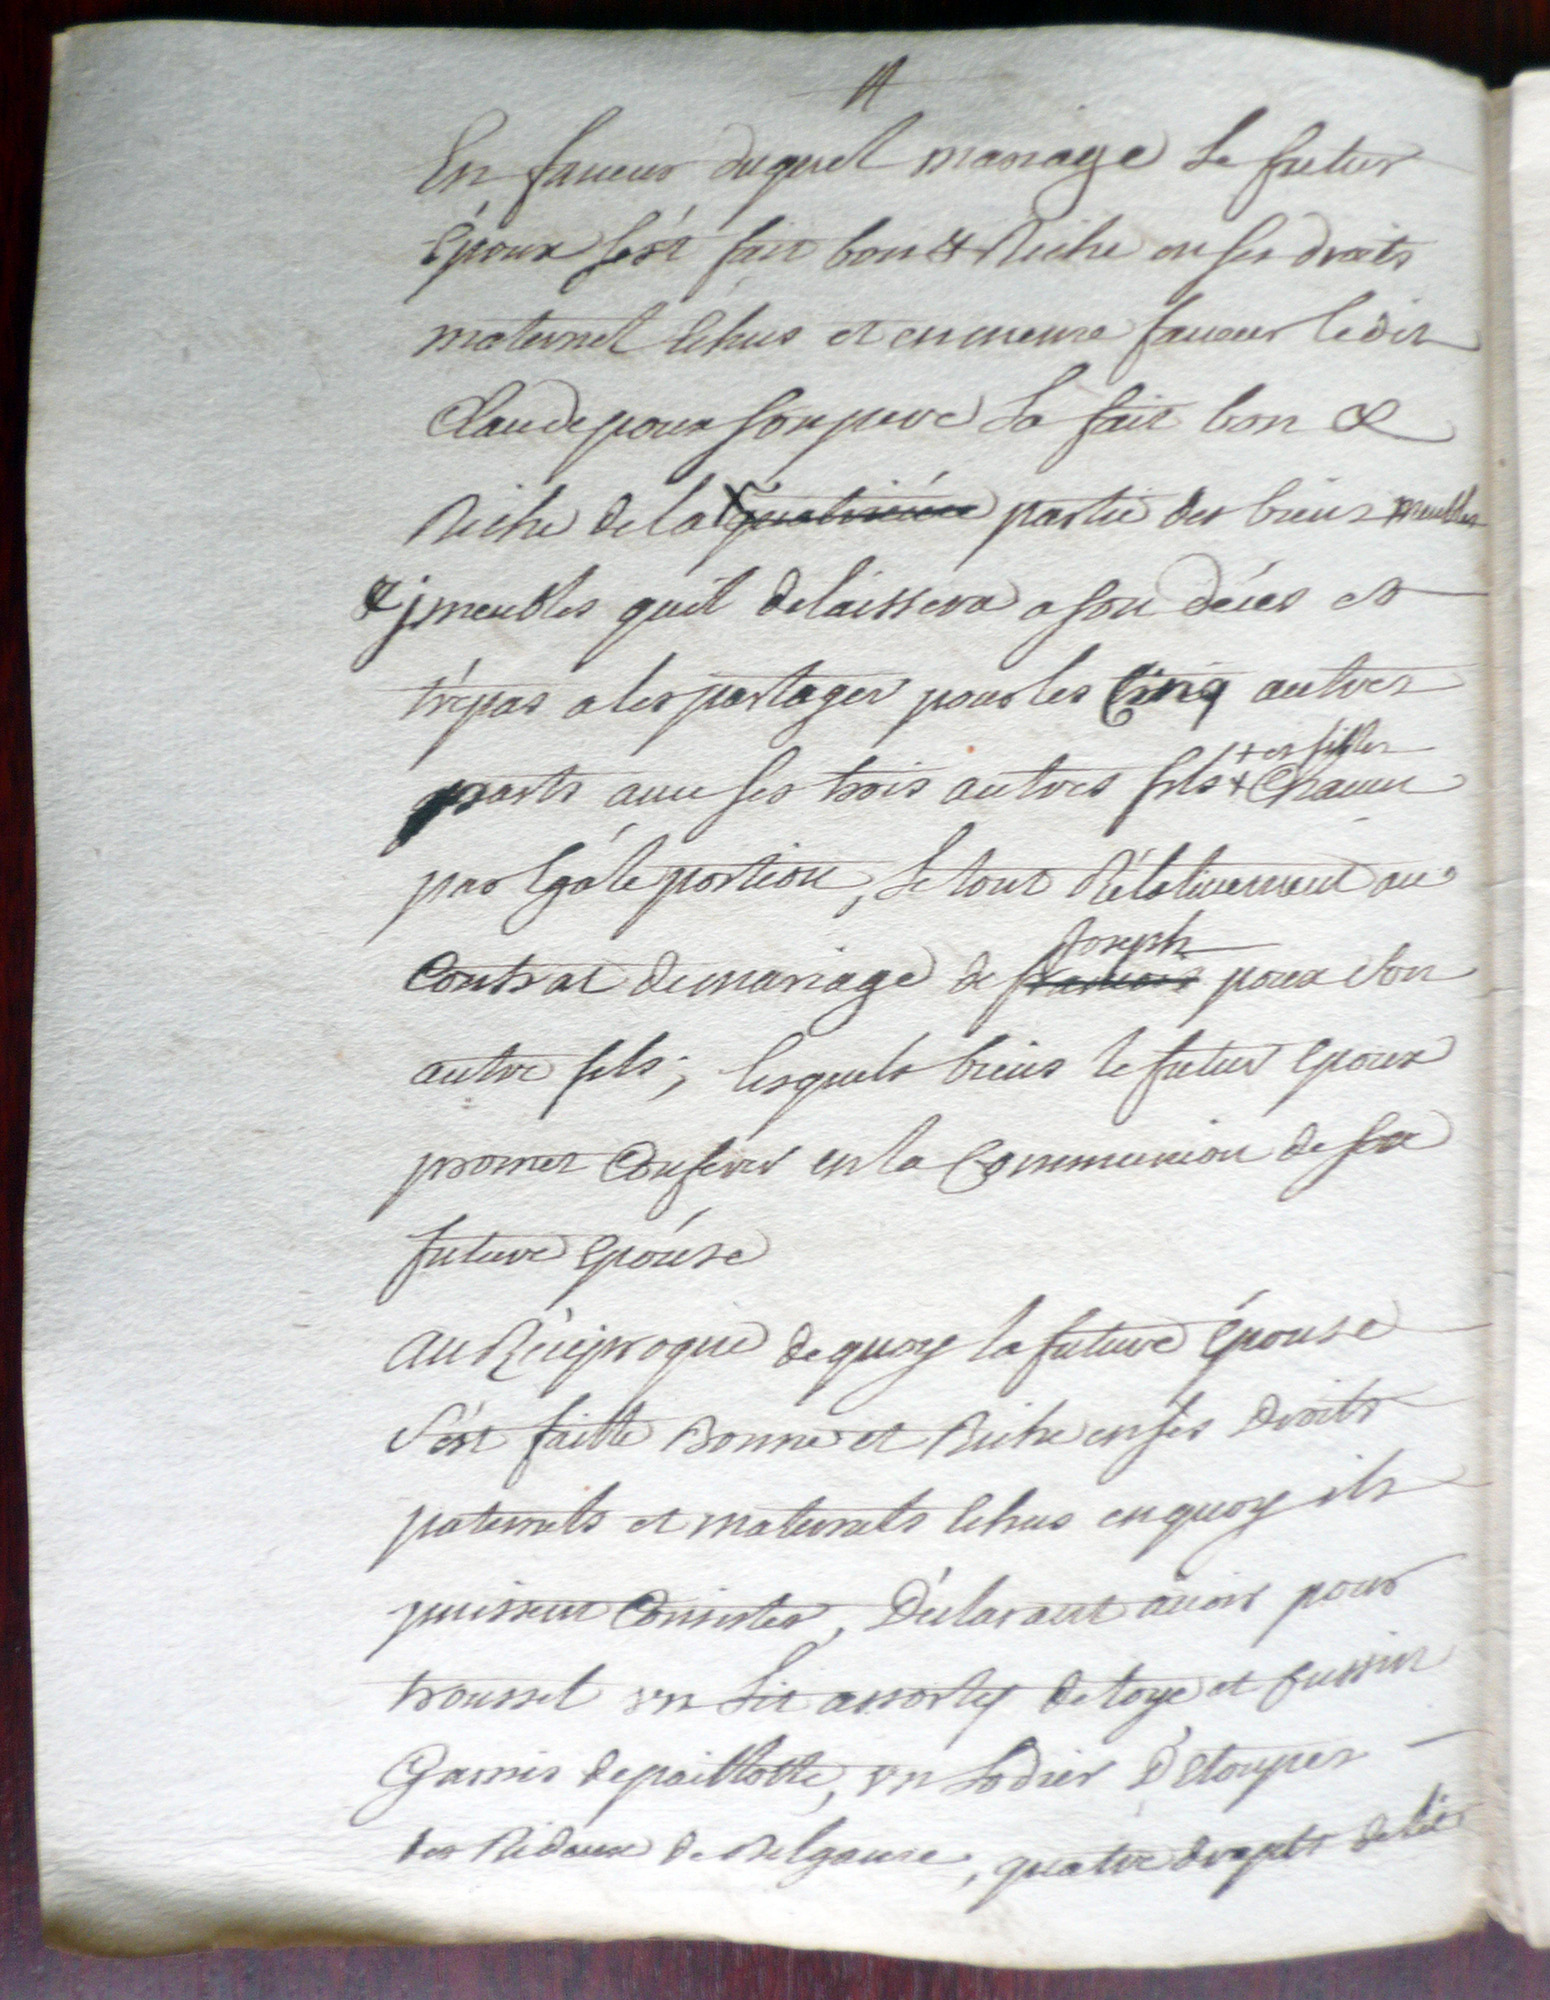 En faueur duquel mariage Le futur
Epoux s'ést fait bon & Riche en ses droits
maternel Echus et en meme faueur ledit
Claude poux son pere La fait bon &
Riche de la quatriéme partie des biens meubles
& jmeubles quil delaissera a son décés et
trépas a les partager pour les Cinq autres
parts auec ses trois autres fils + Chacun
+ et filles
par Egále portion, Le tout Rélatiuement au
Joseph
Contrat de mariage de francois poux son
autre fils; lesquels biens le futur Epoux
promet Conferer en la Communion de sa
future Epoúse
Au Réciproque de quoy la future Épouse
S'ést faitte Bonne et Riche en ses Droits
paternels et maternels Echus en quoy ils
puissent Consister, Déclarant auoir pour
troussel vn Lit assorty de toye et Cussin
Garnis de paillotte, vn Lodier D'Etoupes
des Ridaux de, quatre draps de lit